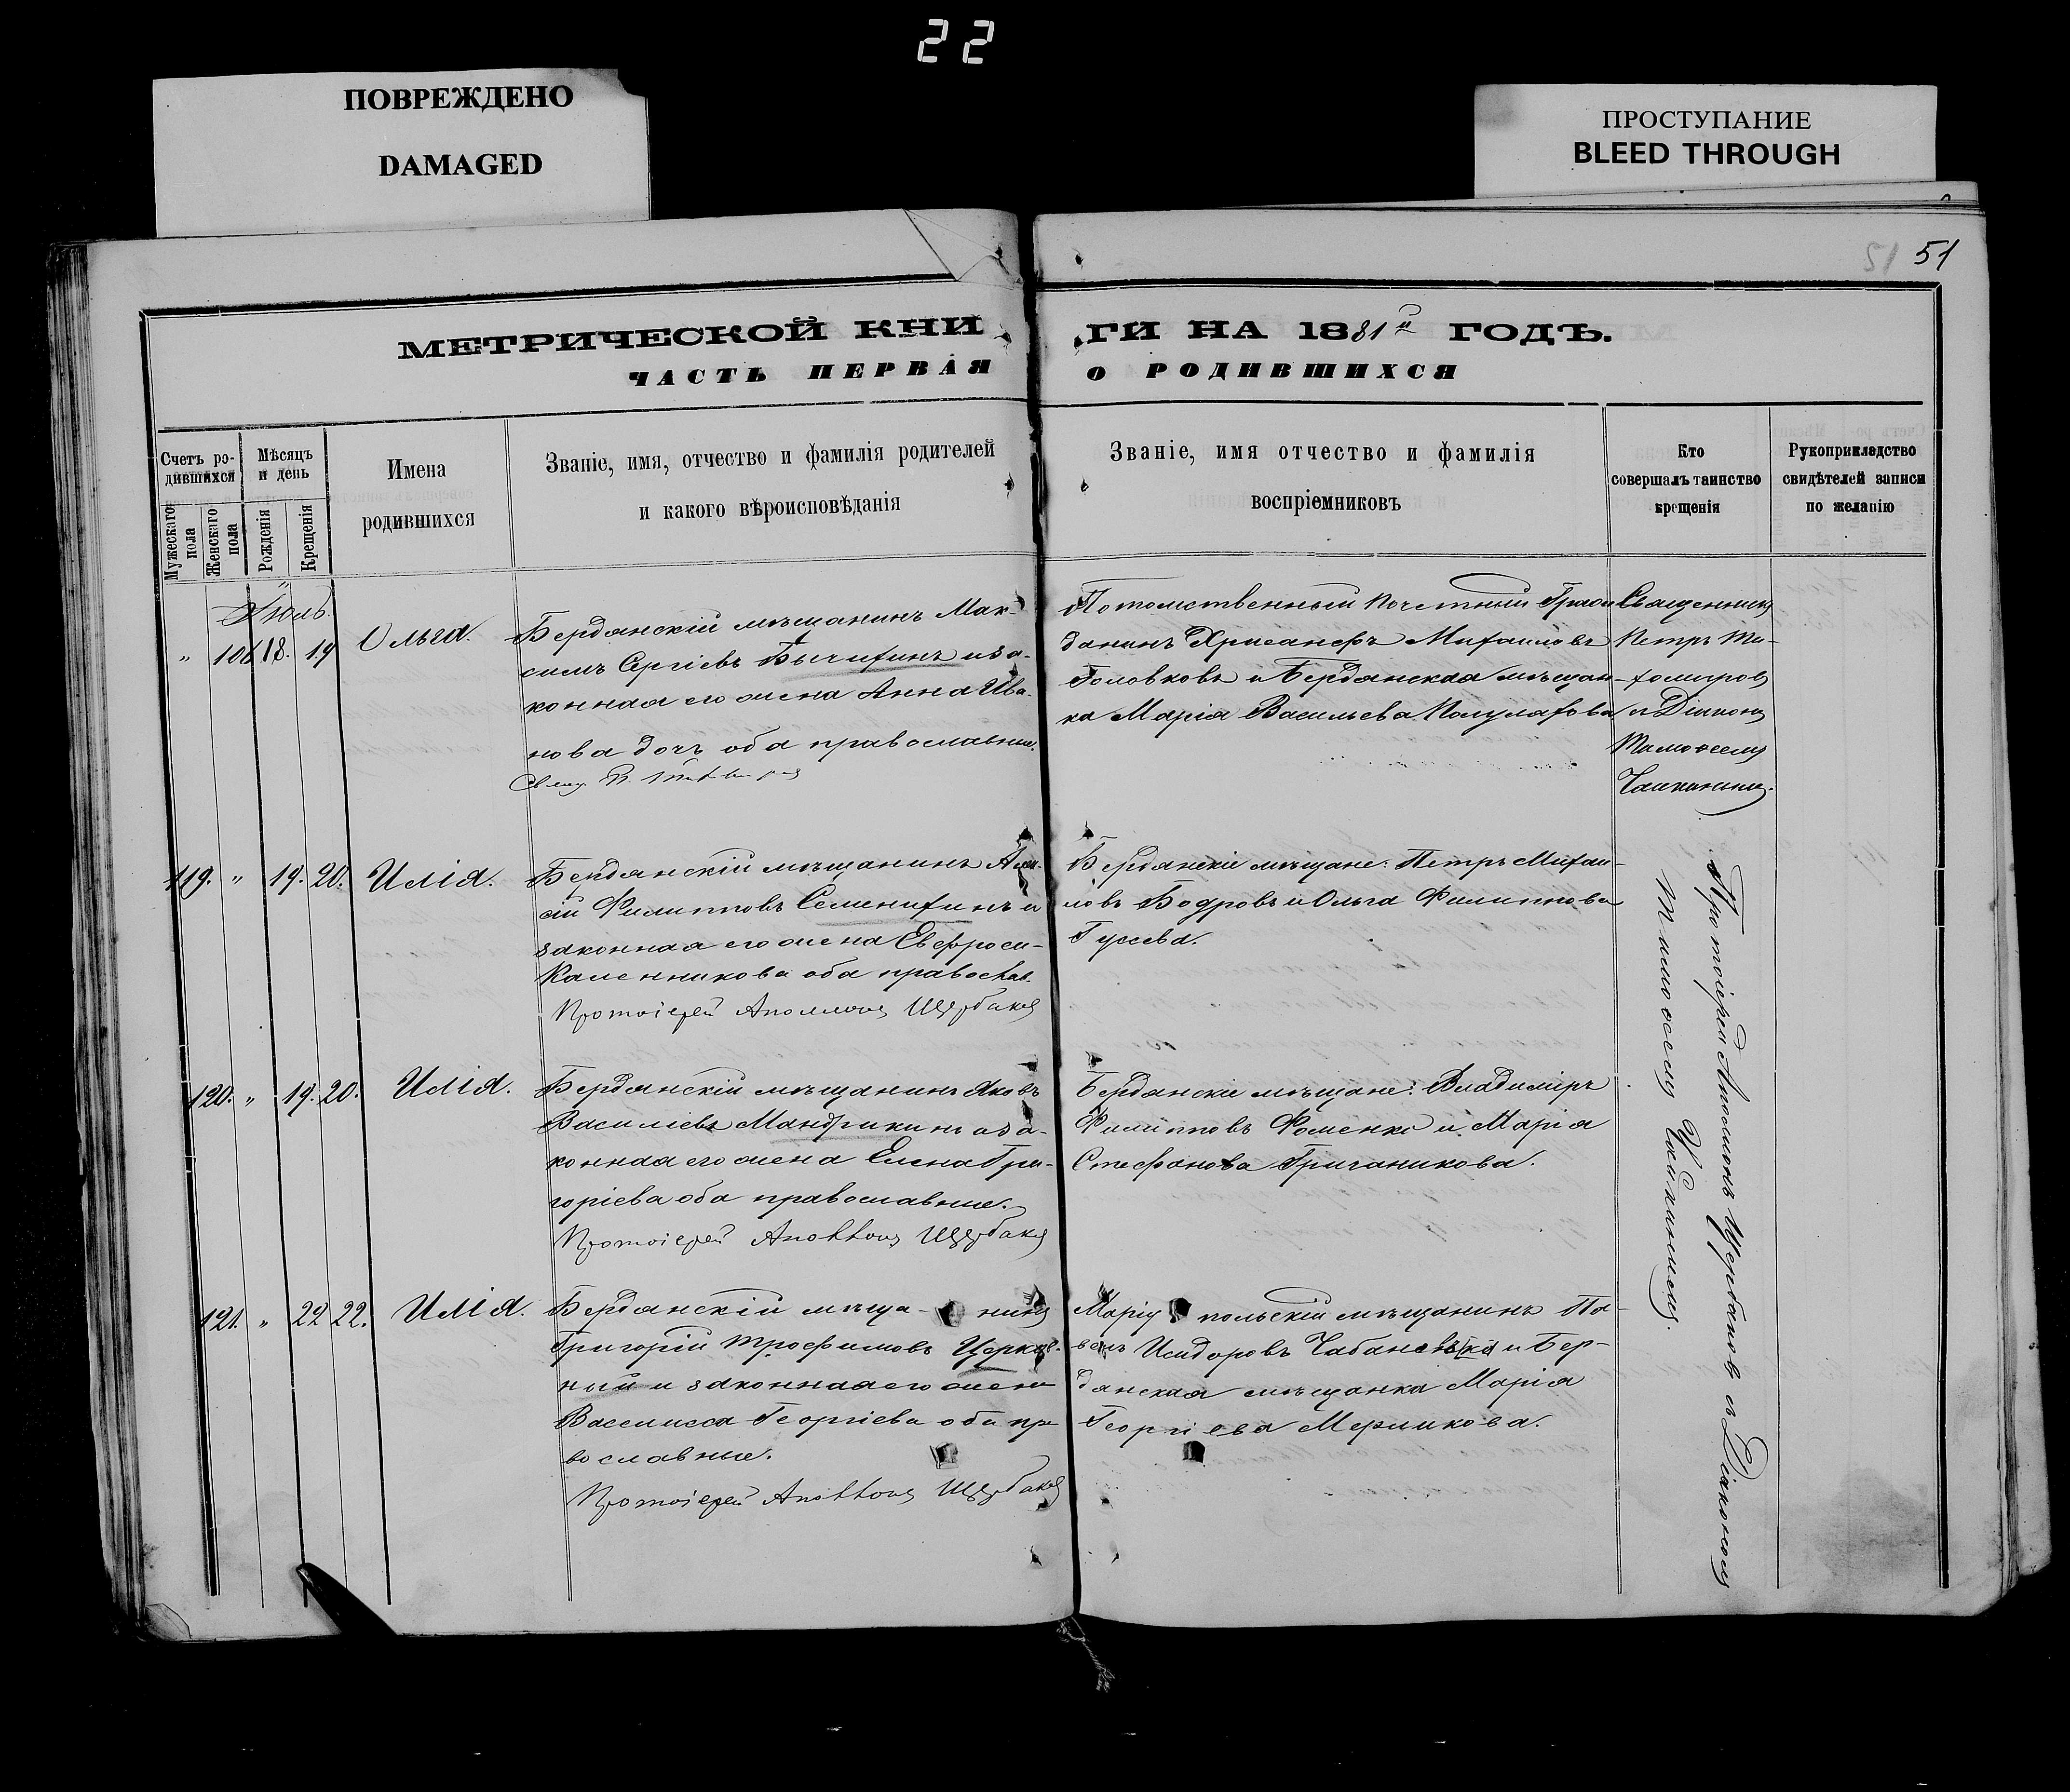 22
ПОВРЕЖДЕНО
DAMAGED
ПРОСТУПАНИЕ
BLEED THROUGH
51
МЕТРИЧЕСКОЙ КНИГИ НА 1881й ГОДЪ.
ЧАСТЬ ПЕРВАЯ О РОДИВШИХСЯ
Счетъ ро-
дившихся
Мужескаго пола
Женскаго пола
Мѣсяцъ
и день
Рожденія
Крещенія
Имена
родившихся
Званіе, имя, отчество и фамилія родителей
и какого вѣроисповѣданія
Званіе, имя отчество и фамилія
воспріемниковъ
Кто
совершалъ таинство
крещенія
Рукоприкладство
свидѣтелей записи
по желанію
Іюль.
" 106 18. 19 Ольга.
Бердянскій мѣщанинъ Мак-
симъ Сергіевъ Бычихинъ и за-
конная его жена Анна Ива-
нова дочь оба православные.
Потомственный Почетный Граж
данинъ Хрисанфъ Михаиловъ
Головковъ и Бердянская мѣщан-
ка Марія Васильева
Священникъ
Петръ Ти-
хомировъ
съ Діакономъ
Тимоѳеемъ
119. " 19. 20. Илія.
Бердянскій мѣщанинъ
Филипповъ Семенихинъ и
законная его жена Евфроси-
Каменникова оба православ.
Протоіерей Аполлонъ Щербаковъ
Бердянскіе мѣщане: Петръ Михаи-
ловъ Бодровъ и Ольга Филиппова
Гусева.
120. " 19. 20. Илія.
Бердянскій мѣщанинъ Яковъ
Василіевъ Мандрикинъ и за-
конная его жена Елена Гри-
горіева оба православные.
Протоіерей Аполлонъ Щербаковъ
Бердянскіе мѣщане: Владиміръ
Филипповъ Фоменко и Марія
Стефанова Григаникова.
121. " 22 22. Илія.
Бердянскій мѣща-нинъ
Григорій Трофимовъ Церков-
ный и законная его жена
Васелисса Георгіева оба пра
вославные.
Протоіерей Аполлонъ Щербаковъ
Маріупольскій мѣщанинъ Па-
велъ Исидоровъ и Бер-
дянская мѣщанка Марія
Георгіева Мерликова.
Протоіерей Аполлонъ Щербаковъ съ Діакономъ
Тимоѳеемъ